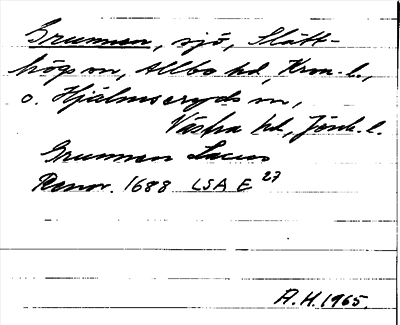 Grunnen, sjö, Slätt-
högs sn, Allbo hd, Kron. l.,
o. Hjälmseryds sn,
Västra hd, Jönk. l.
Grunnen Lacus
Renov. 1688 LSA E 27
A.H. 1965.